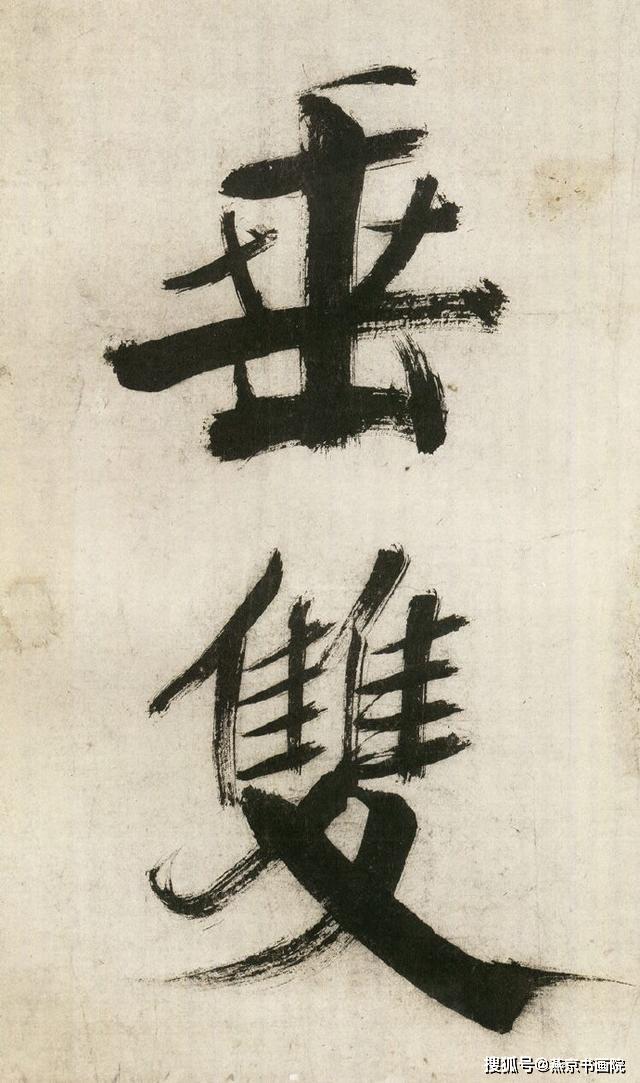 垂
雙
搜狐号@燕京书画院